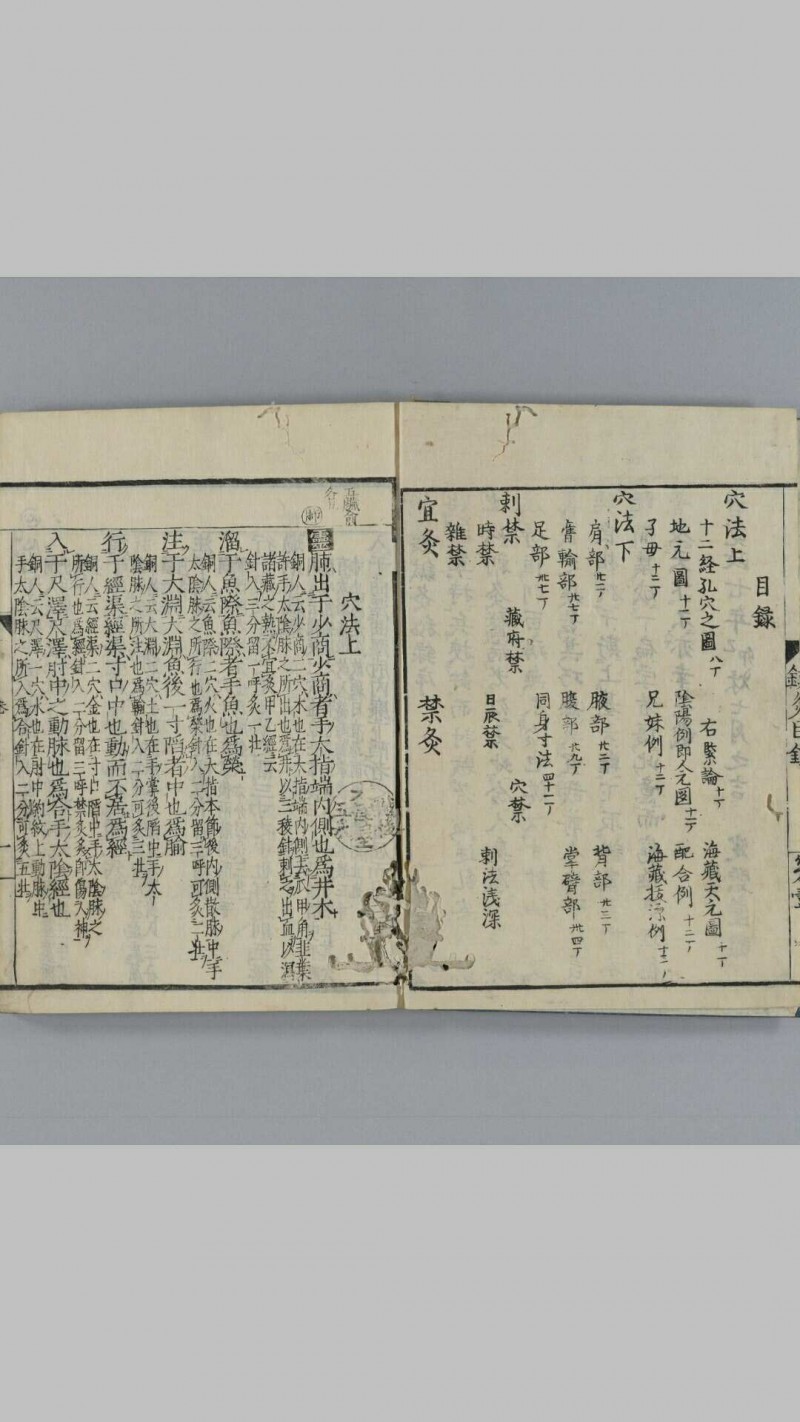 目録
穴法上
十二経孔穴之圖 八丁 右緊論 十丁 海藏天元圖 十丁
地元圖 十二丁 陰陽例即人元圖 十二丁 配合例 十二丁
子母 十二丁 兄妹例 十二丁 海藏接源例
穴法下
肩部 腋部 卅二丁 背部 卅三丁
膂輸部 卅七丁 腹部 卅九丁 掌臂部 卅四丁
足部 卅七丁 同身寸法 四十二丁
刺禁 藏府禁 穴禁
時禁 日辰禁 刺法浅深
雜禁
宜灸 禁灸
五臟俞
穴法上
靈 肺出于少商少商者手大指端内側也爲井木
銅人云少商二穴木也在大指端内側去爪甲角韭葉
許手太陰脉之所出也爲井以三稜針刺之出血以瀉
諸藏之熱不宜灸甲乙經云
針入一分留一呼灸一壮
溜于魚際魚際者手魚也爲榮
銅人云魚際二穴火也在大指本節後内側散脉中手
太陰脉之所行也爲榮針入二分留三呼可灸三壮
注于大淵大淵魚後一寸陷者中也爲腧
銅人云大淵二穴土也在手掌後陷中手太
陰脉之所注也爲輸針入二分可灸三壮
行于經渠經渠寸口中也動而不居爲經
銅人云經渠二穴金也在寸口陷中手太陰脉之
所行也爲經針入二分留三呼禁灸灸即傷人神
入于尺澤尺澤肘中之動脉也爲合手太陰經也
銅人云尺澤二穴水也在肘中約紋上動脉中
手太陰脉之所入爲合針入三分可灸五壮